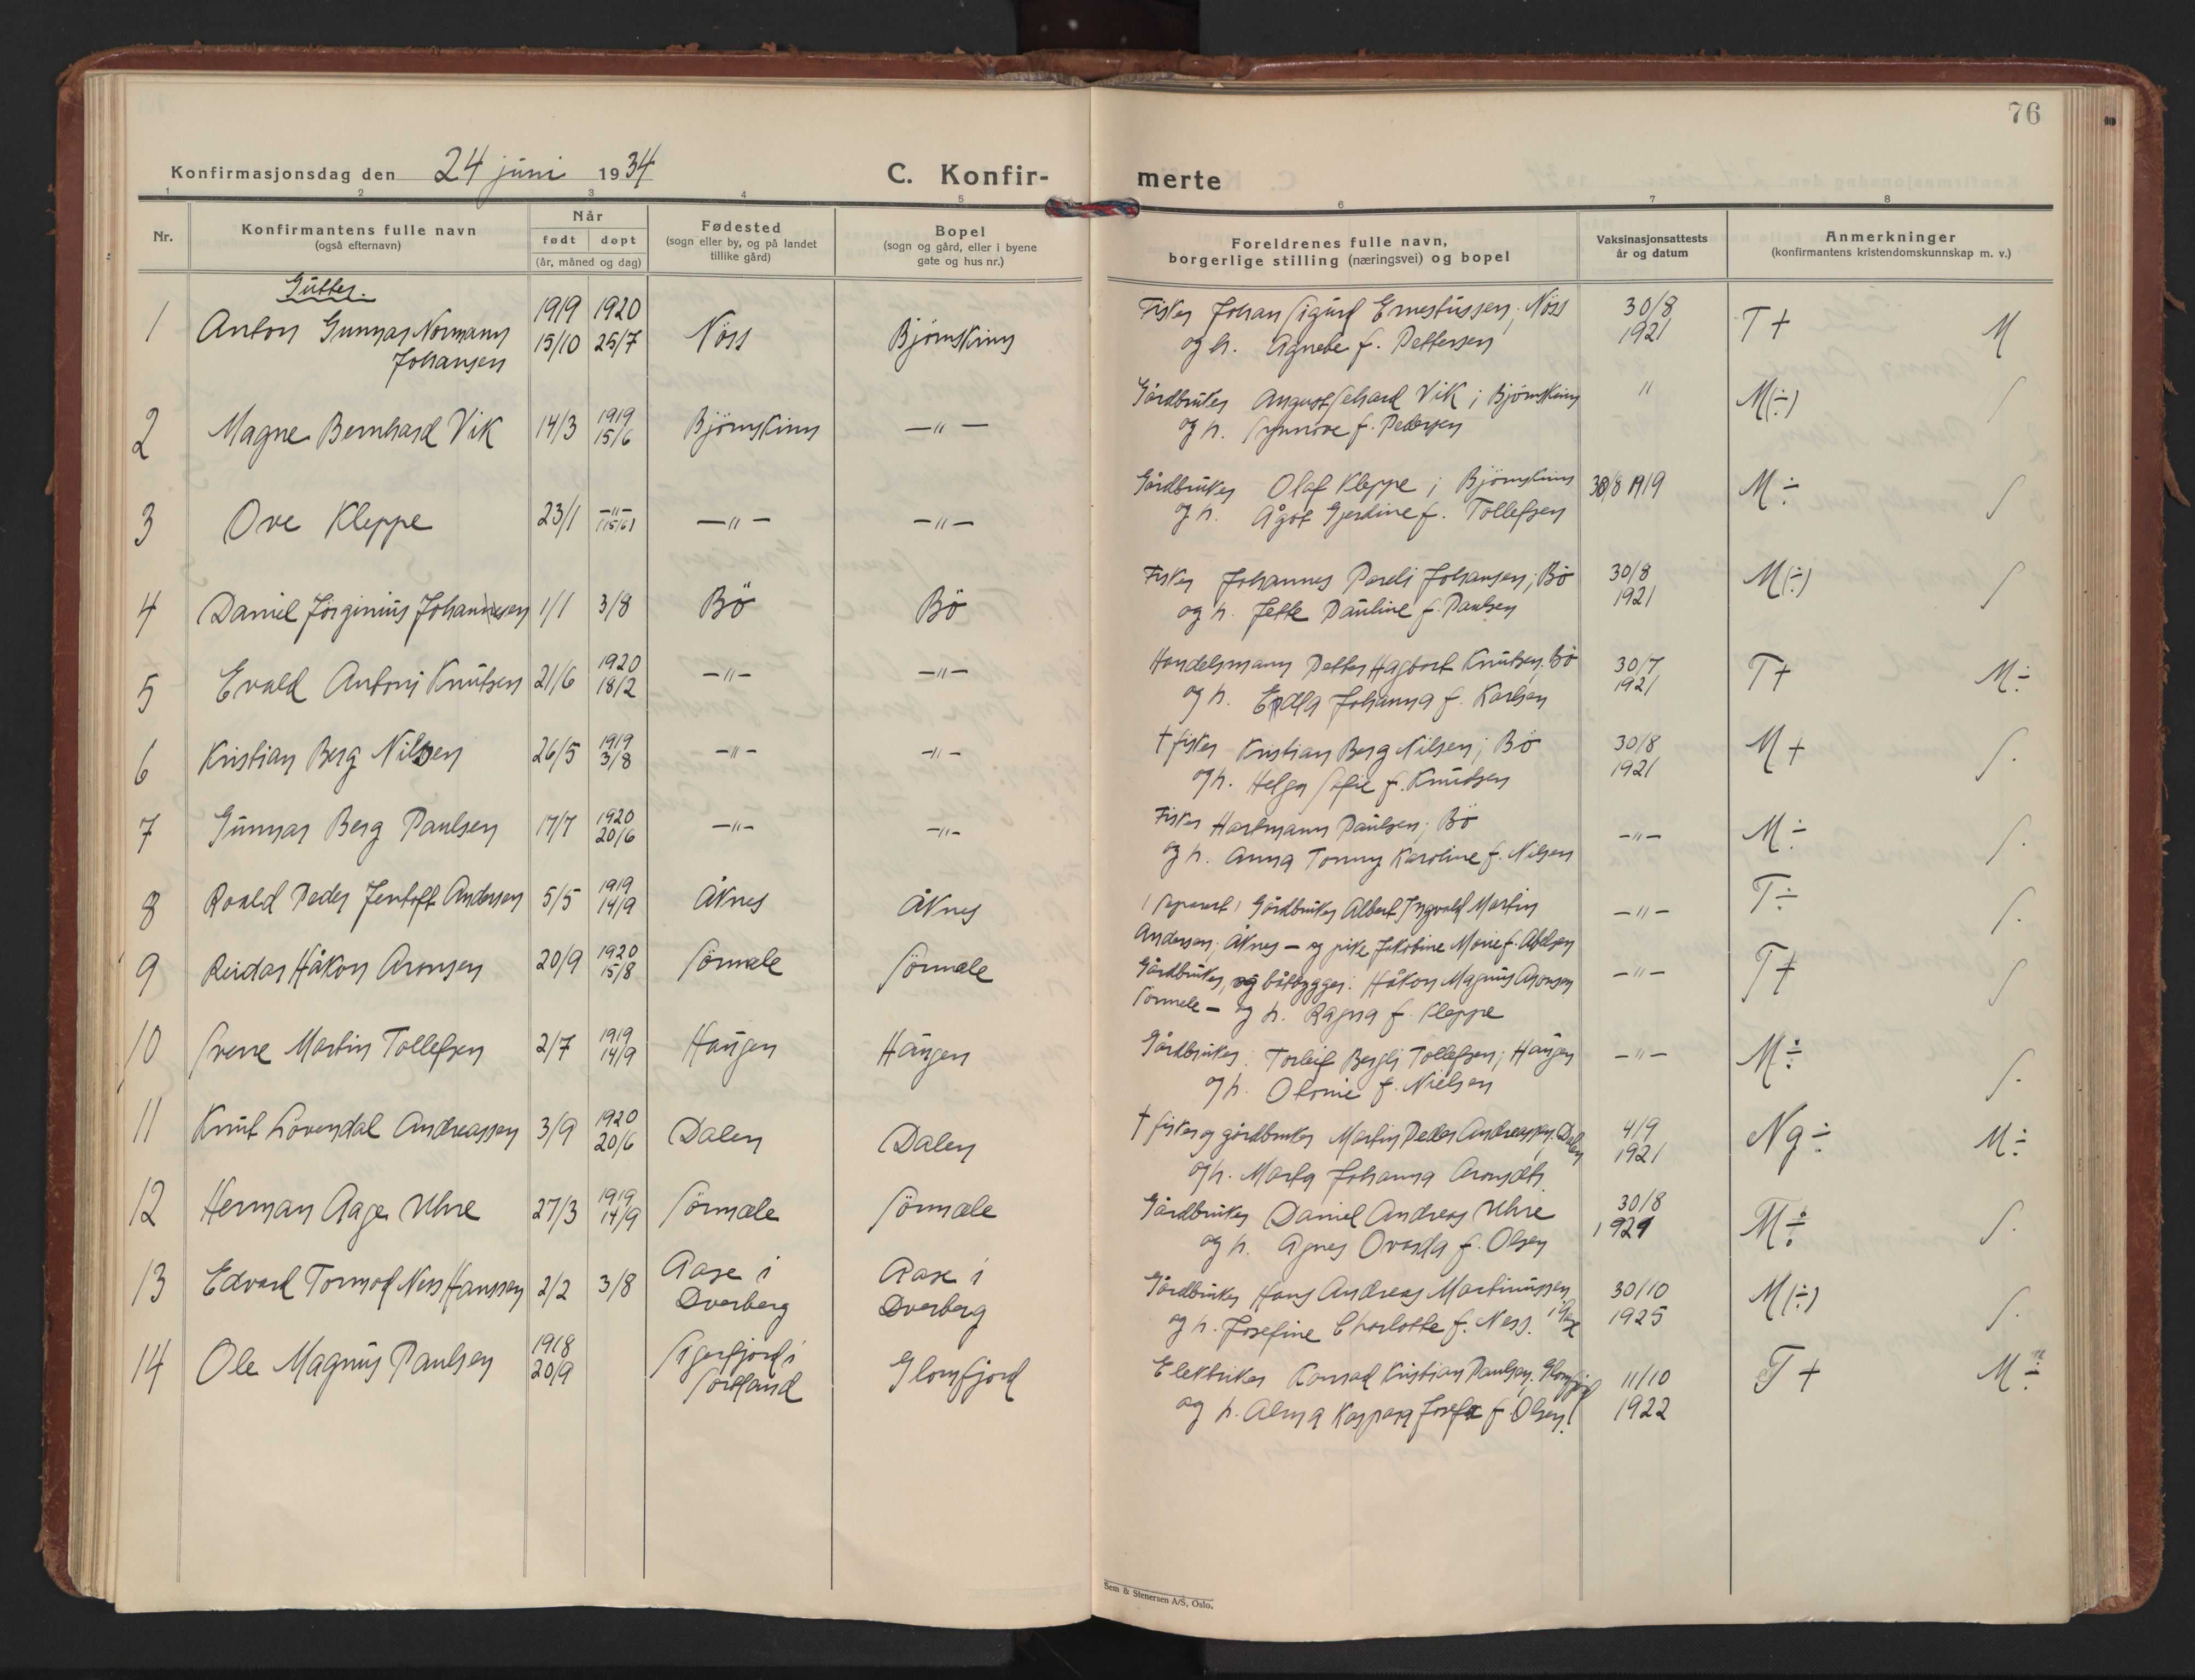 76
Konfirmasjonsdag den 24 juni 1934
C. Konfir-
merte
1 2 3 4 5 6 7 8
Nr.
Konfirmantens fulle navn
(også efternavn)
Når
født døpt
(år, måned og dag)
Fødested
(sogn eller by, og på landet
tillike gård)
Bopel
(sogn og gård, eller i byene
gate og hus nr.)
Foreldrenes fulle navn,
borgerlige stilling (næringsvei) og bopel
Vaksinasjonsattests
år og datum
Anmerkninger
(konfirmantens kristendomskunnskap m. v.)
Gutter.
1 Anton Gunnar Normann 1919 1920 Nöss Björnskinn Fisker Johan Sigurd Ernestussen; Nöss 30/8 T+ M
Johansen 15/10 25/7 og h. Agnete f. Pettersen 1921
2 Magne Bernhard Vik 14/3 1919 Björnskinn —"— Gårdbruker August Vik; Björnskinn " M(÷) S
15/6 og h. Synnöve f. Pedersen
3 Ove Kleppe 23/1 —"— —"— —"— Gårdbruker Olaf Kleppe; Björnskinn 30/8 1919 M÷ S
(15/6) og h. Ågot Gjerdine f. Tollefsen
4 Daniel Jörginius Johansen 1/1 3/8 Bö Bö Fisker Johannes Pareli Johansen; Bö 30/8 M(÷) S
og h. Jette Pauline f. Paulsen 1921
5 Evald Antoni Knutsen 21/6 1920 —"— —"— Handelsmann Petter Hagbart Knutsen. Bö 30/7 T+ M÷
18/2 og h. Endla Johanna f. Karlsen 1921
6 Kristian Berg Nilsen 26/5 1919 —"— —"— † fisker Kristian Berg Nilsen; Bö 30/8 M+ S.
3/8 og h. Helga Sofie f. Knudsen 1921
7 Gunnar Berg Paulsen 17/7 1920 —"— —"— Fisker Hartmann Paulsen; Bö —"— M÷ S.
20/6 og h. Anna Tonny Karoline f. Nilsen
8 Roald Peder Jentoft Andersen 5/5 1919 Åknes Åknes (Separert) Gårdbruker Albert Ingvald Martin —"— T÷ S.
14/9 Andersen; Åknes — og pike Jakobine Marie f. Abelsen
9 Reidar Håkon Aronsen 20/9 1920 Sörmele Sörmele Gårdbruker, og båtbygger: Håkon Magnus Aronsen —"— T+ S
15/8 Sörmele — og h. Ragna f. Kleppe
10 Sverre Martin Tollefsen 2/7 1919 Haugen Haugen Gårdbruker: Torleif Bergli Tollefsen; Haugen —"— M÷ S.
14/9 og h. Otonie f. Nielsen
11 Knut Lövendal Andreassen 3/9 1920 Dalen Dalen † fisker og gårdbruker Martin Peder Andreassen; Dalen 4/9 Ng÷ M÷
20/6 og h. Marta Johanna Aronsdtr. 1921
12 Herman Aage Uhre 27/3 1919 Sörmele Sörmele Gårdbruker Daniel Andreas Uhre 30/8 M÷ S.
14/9 og h. Agnes Ovarda f. Olsen 1921
13 Edvard Tormod Ness Hanssen 2/2 3/8 Aase i Aase i Gårdbruker Hans Andreas Martinussen 30/10 M(÷) S.
Dverberg Dverberg og h. Josefine Charlotte f. Ness. i Aase 1925
14 Ole Magnus Paulsen 1918 Sigerfjord i Glomfjord Elektriker Konrad Kristian Paulsen; Glomfjord 11/10 T+ M÷
20/9 Sortland og h. Alma Kaspara Josefa f. Olsen. 1922
Sem & Stenersen A/S, Oslo.